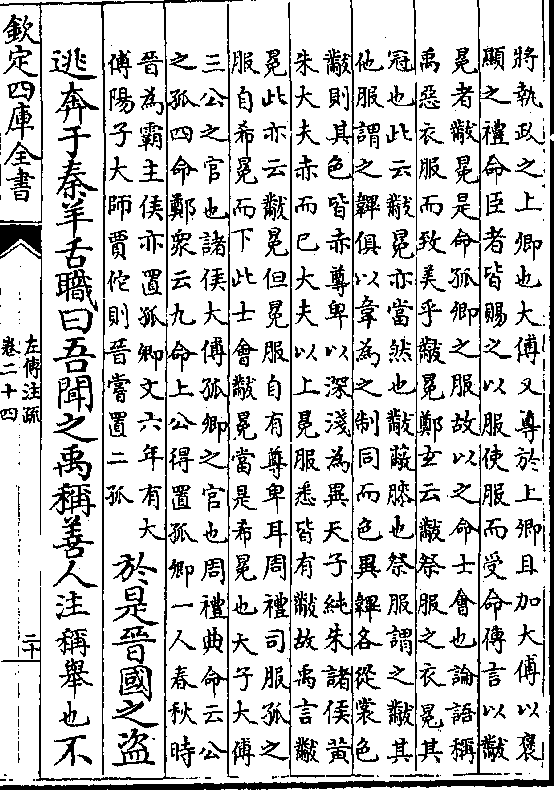 將執政之上卿也大傅又尊於上卿且加大傅以褒
顯之禮命臣者皆賜之以服使服而受命傳言以黻
冕者黻冕是命孤卿之服故以之命士會也論語稱
禹惡衣服而致美乎黻冕鄭𤣥云黻祭服之衣冕其
冠也此云黻冕亦當然也黻蔽膝也祭服謂之黻其
他服謂之韠俱以韋為之制同而色異韠各從裳色
黻則其色皆赤尊卑以深淺為異天子純朱諸侯黃
朱大夫赤而已大夫以上冕服悉皆有黻故禹言黻
冕此亦云黻冕但冕服自有尊卑耳周禮司服孤之
服自希冕而下此士會黻冕當是希冕也天子大傅
三公之官也諸侯大傅孤卿之官也周禮典命云公
之孤四命鄭衆云九命上公得置孤卿一人春秋時
晉為霸主侯亦置孤卿文六年有大
傅陽子大師賈佗則晉嘗置二孤
於是晉國之盜
逃奔于秦羊舌職曰吾聞之禹稱善人注稱舉也不
欽定四庫全書
左傳注疏
卷二十四
二十